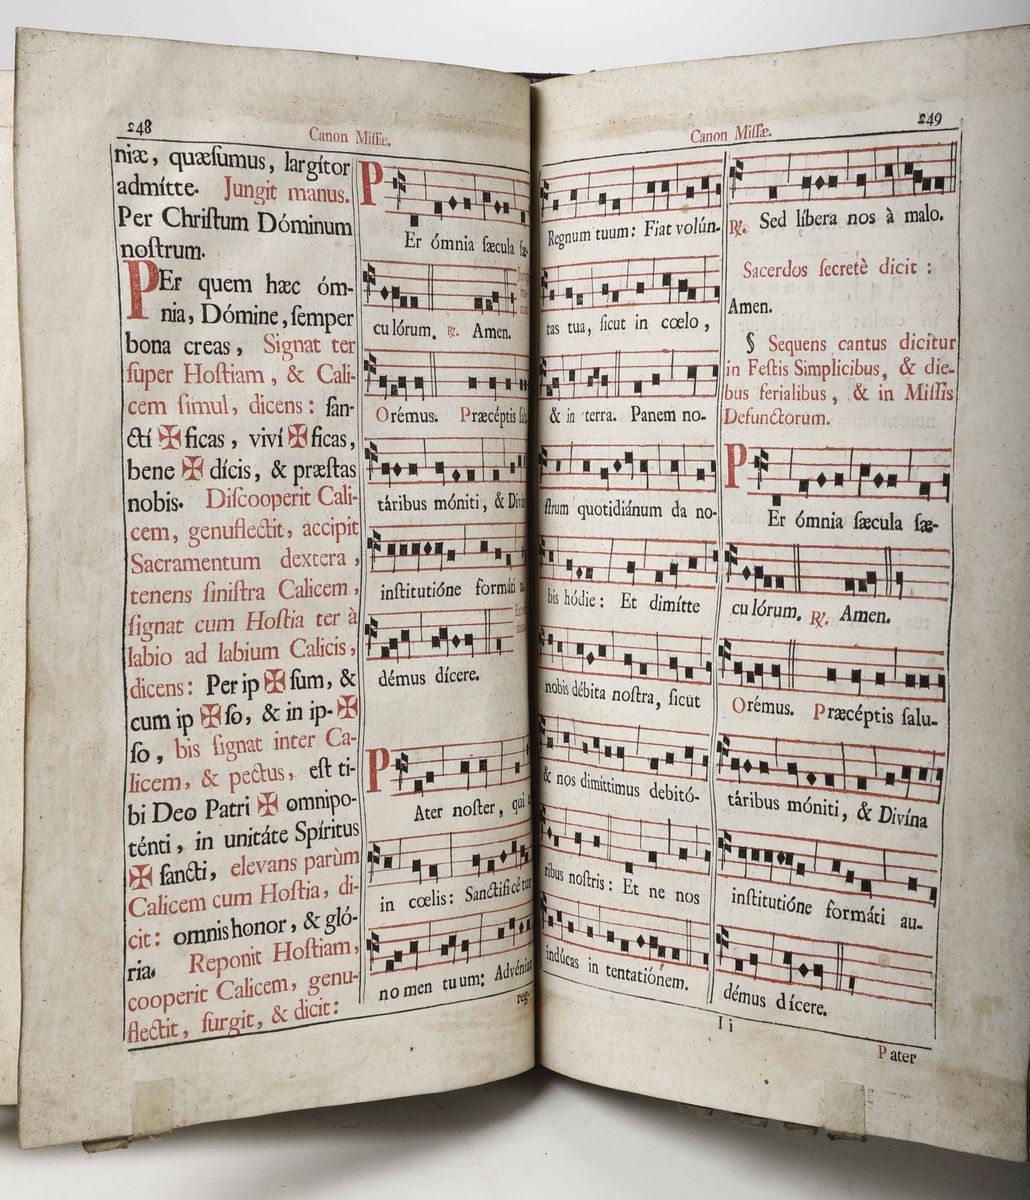 248
Canon Missæ.
niæ, quæsumus, largítor
admítte. Jungit manus.
Per Christum Dóminum
nostrum.
PEr quem hæc óm-
nia, Dómine, semper
bona creas, Signat ter
super Hostiam, & Cali-
cem simul, dicens: san-
ctí ✠ ficas, viví ✠ ficas,
bene ✠ dícis, & præstas
nobis. Discooperit Cali-
cem, genuflectit, accipit
Sacramentum dextera,
tenens sinistra Calicem,
signat cum Hostia ter à
labio ad labium Calicis,
dicens: Per ip ✠ sum, &
cum ip ✠ so, & in ip- ✠
so, bis signat inter Ca-
licem, & pectus, est ti-
bi Deo Patri ✠ omnipo-
ténti, in unitáte Spíritus
✠ sancti, elevans parùm
Calicem cum Hostia, di-
cit: omnis honor, & gló-
ria. Reponit Hostiam,
cooperit Calicem, genu-
flectit, surgit, & dicit:
PEr ómnia sæcula sæ-
culórum. ℟. Amen.
Orémus. Præcéptis
táribus móniti, &
institutióne formáti
démus dícere.
PAter noster, qui
in cœlis: Sanctificétur
nomen tuum: Advéniat
reg-
249
Canon Missæ.
Regnum tuum: Fiat volún-
tas tua, sicut in cœlo,
& in terra. Panem no-
strum quotidiánum da no-
bis hódie: Et dimítte
nobis débita nostra, sicut
& nos dimíttimus debitó-
ribus nostris: Et ne nos
indúcas in tentatiónem.
℟. Sed líbera nos à malo.
Sacerdos secretè dicit:
Amen.
§ Sequens cantus dicitur
in Festis Simplicibus, & die-
bus ferialibus, & in Missis
Defunctorum.
PEr ómnia sæcula sæ-
culórum. ℟. Amen.
Orémus. Præcéptis salu-
táribus móniti, & Divína
institutióne formáti au-
démus dícere.
Ii
Pater